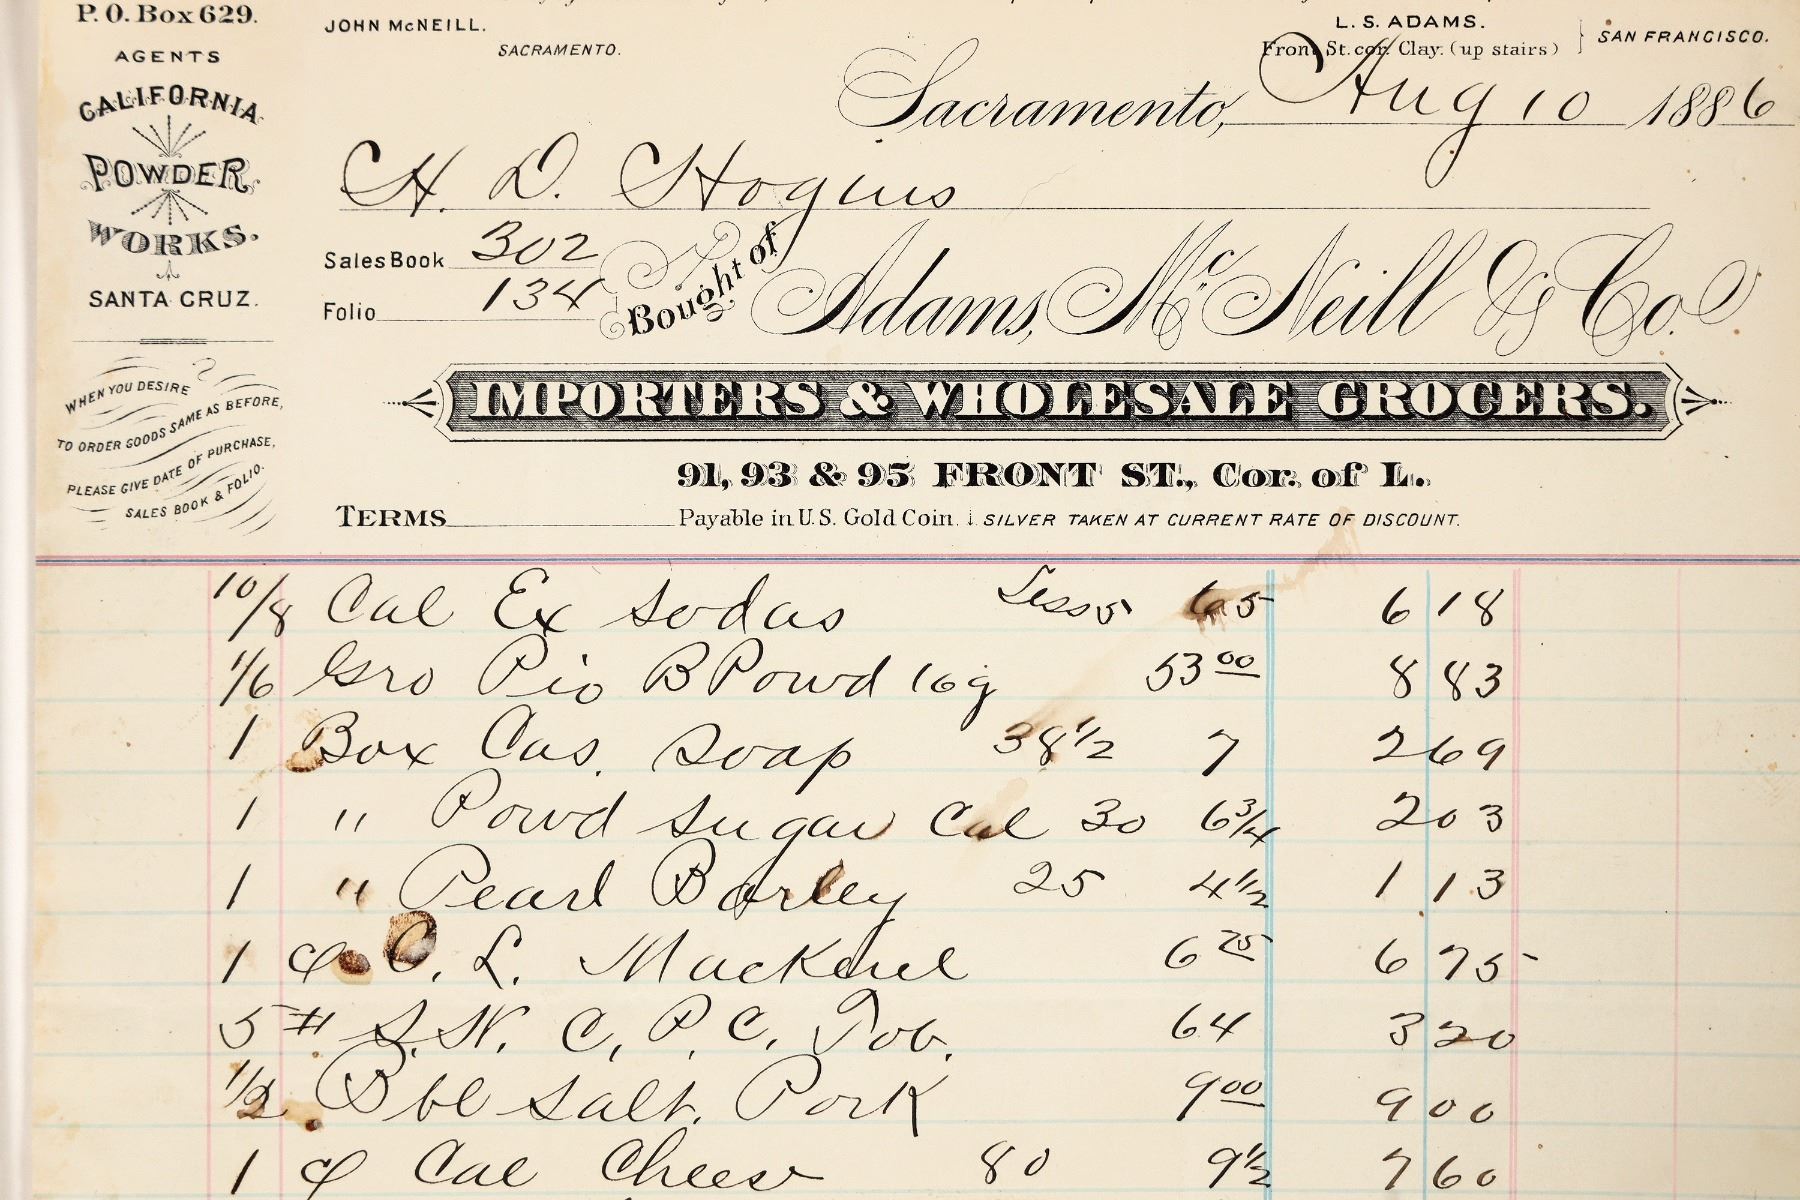 P. O. Box 629.
AGENTS
CALIFORNIA
POWDER
WORKS.
SANTA CRUZ.
WHEN YOU DESIRE
TO ORDER GOODS SAME AS BEFORE,
PLEASE GIVE DATE OF PURCHASE,
SALES BOOK & FOLIO.
JOHN McNEILL.
SACRAMENTO.
L. S. ADAMS.
Front St. cor. Clay. (up stairs)
SAN FRANCISCO.
Sacramento, Aug 10 1886
H. D. Hogins
Sales Book 302
Folio 134
Bought of Adams, McNeill & Co.
IMPORTERS & WHOLESALE GROCERS.
91, 93 & 95 FRONT ST., Cor. of L.
TERMS Payable in U.S. Gold Coin. SILVER TAKEN AT CURRENT RATE OF DISCOUNT.
10/8 Cal Ex Sodas Less 5 65 6 18
1/6 Gro Pio B Powd 16 g 53 00 8 83
1 Box Cas. Soap 38 1/2 7 2 69
1 " Powd Sugar Cal 30 6 3/4 2 03
1 " Pearl Barley 25 4 1/2 1 13
1 L. Mackerel 6 75 6 75
5 # S. N. C. P. C. Tob. 64 3 20
1/2 Bbl Salt. Pork 9 00 9 00
1 Cal Cheese 80 9 1/2 7 60